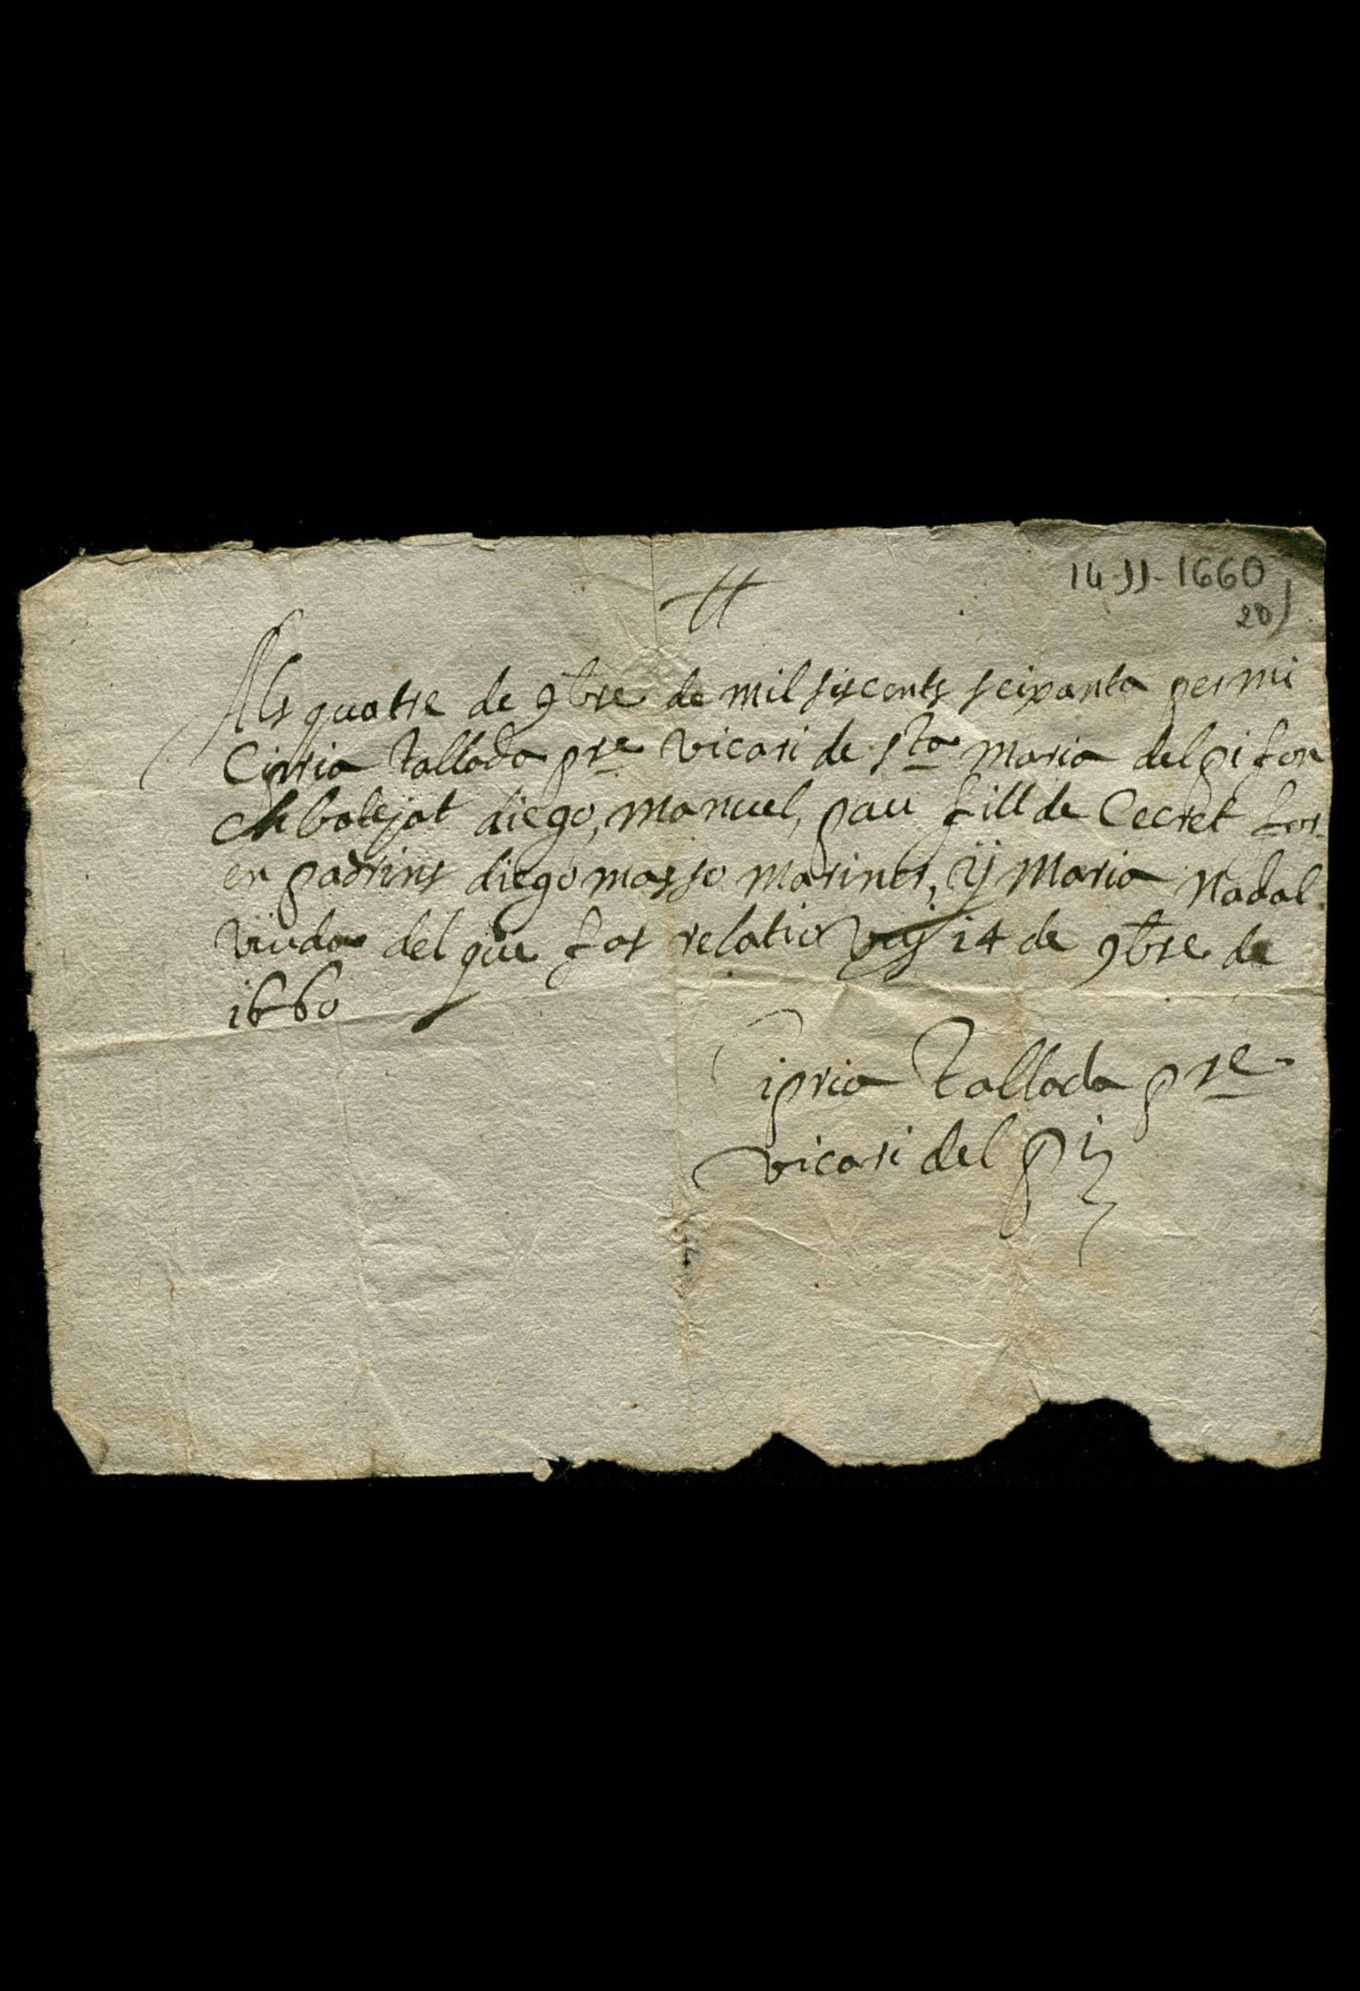 14-11-1660
20)
Als quatre de 9bre de mil siscents seixanta per mi
Cipria Tallada pre vicari de Sta Maria del pi fon
batejat diego, manuel, pau fill de Cecret for
en padrins diego masso mariner, y Maria Nadal
viuda del que fas relatio vuy 14 de 9bre de
1660
Cipria Tallada pre
vicari del pi